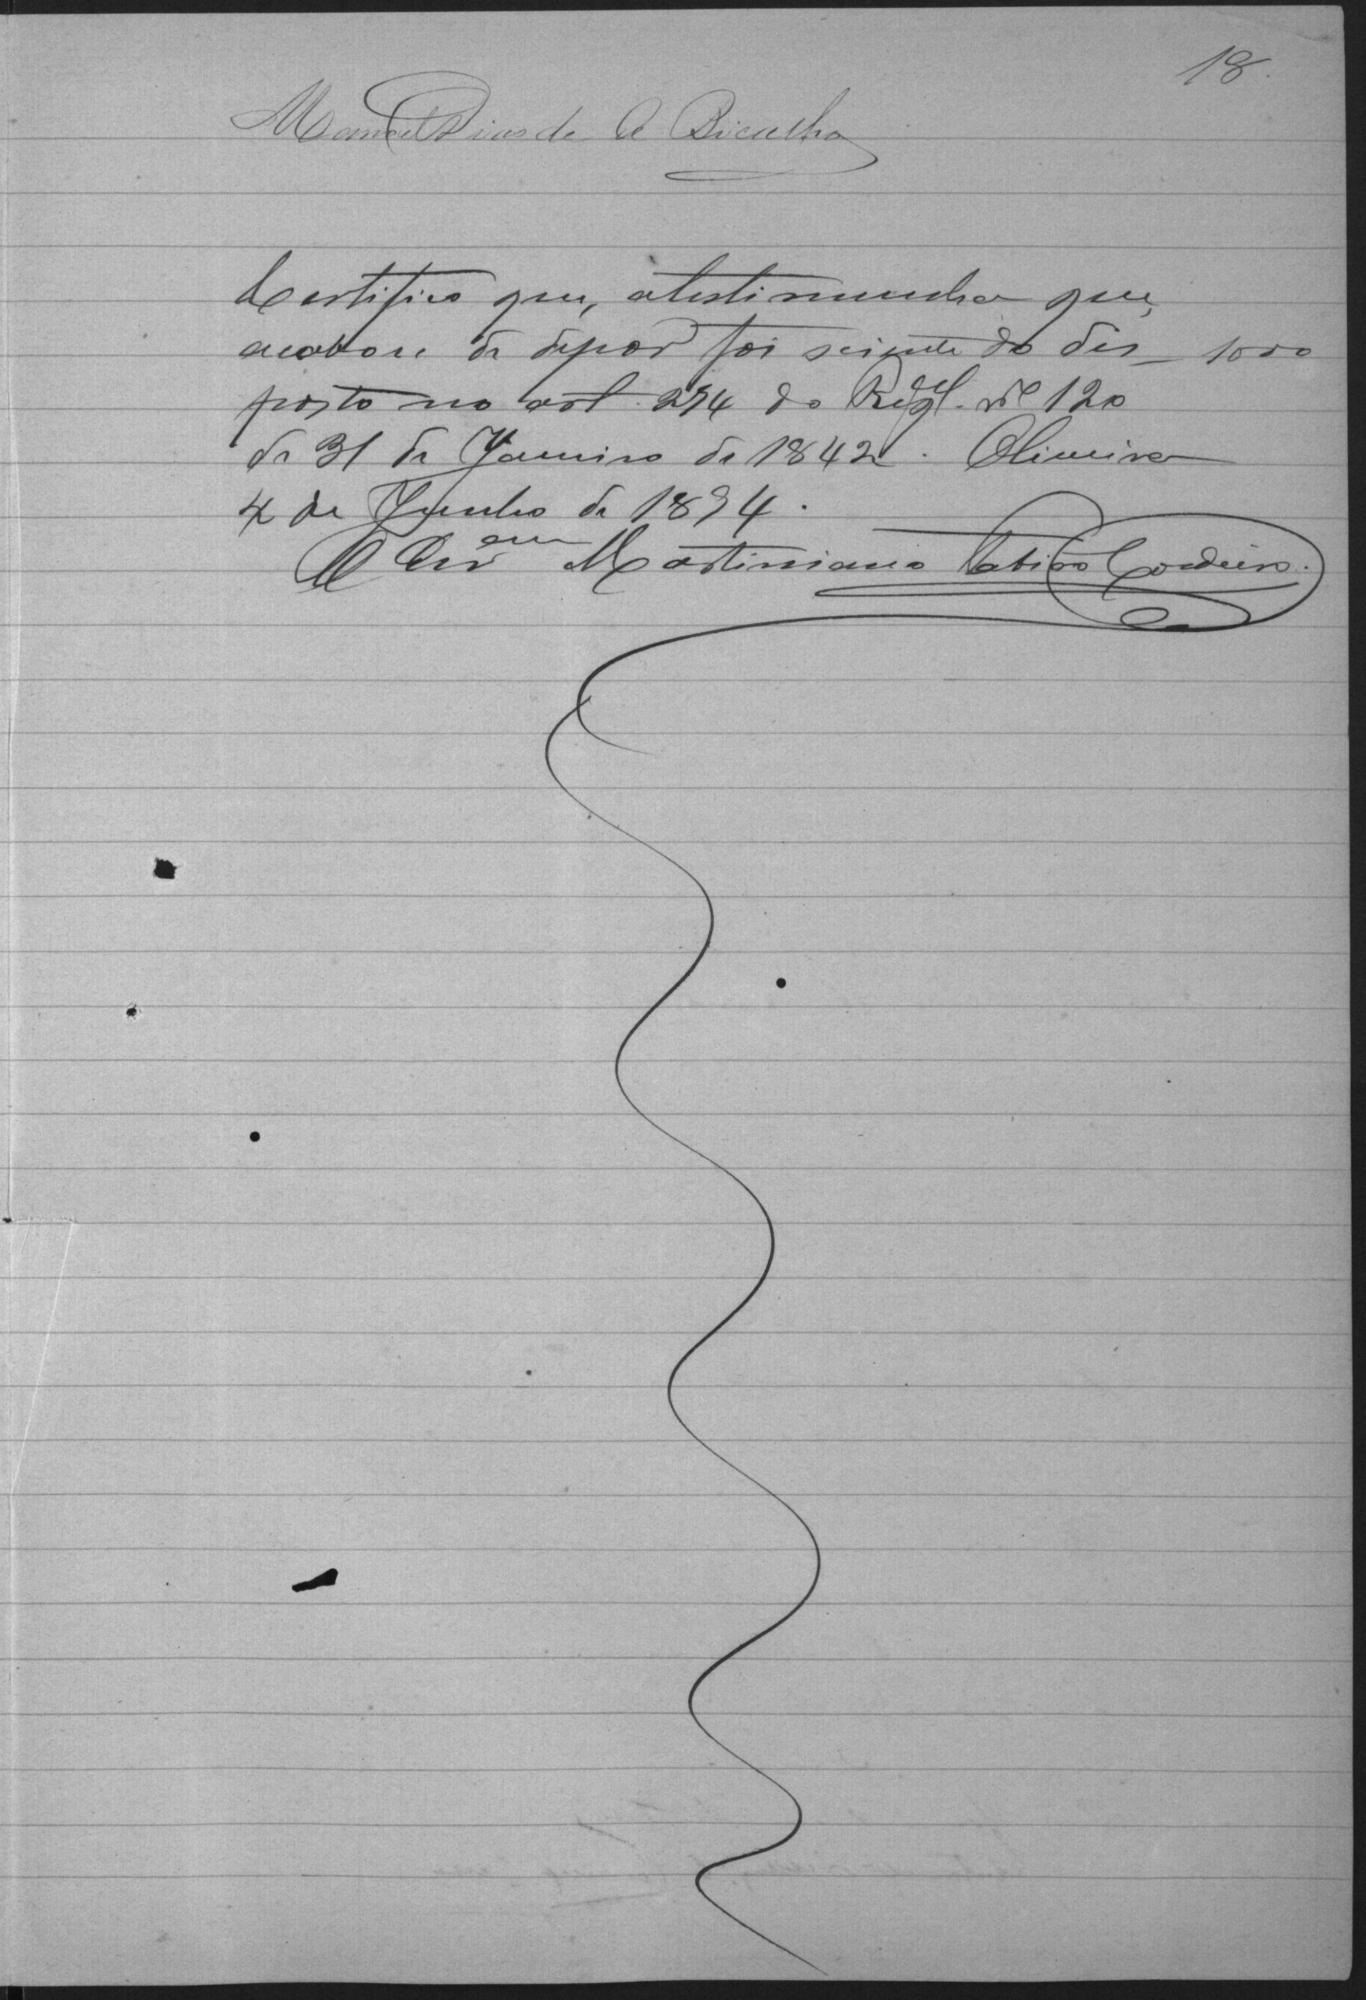 18.
Manoel Dias de A Bicalho
Certifico que, atestimunha que,
acabou de depor foi sciente do dis- 1000
posto no art. 294 do Regl. nº 120
de 31 de Janeiro de 1842. Oliveira
4 de Junho de 1894.
O Escr am Martiniano Cordeiro.